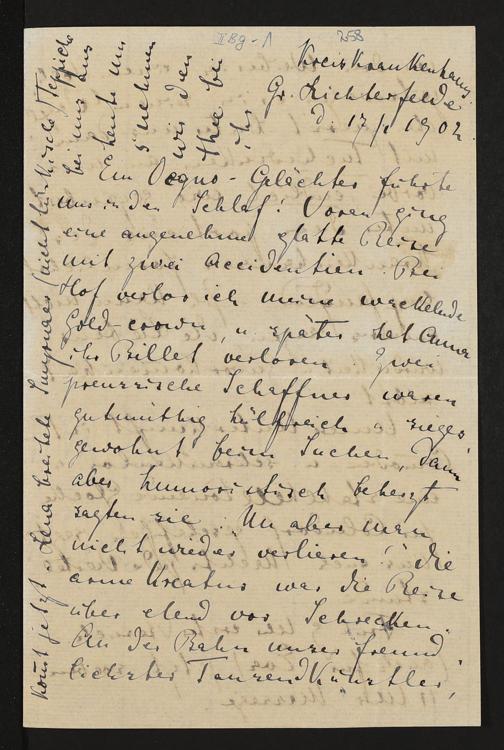 258
Kreiskrankenhaus.
Gr. Lichterfelde
d. 17/1 1902.
Ein Gelächter führte
uns in den Schlaf! Voran ging
eine angenehme glatte Reise
mit zwei Accidentien. Bei
Hof verlor ich meine wackelnde
Gold-crown, u. später hat Anna
ihr Billet verloren. Zwei
preussische Schaffner waren
gutmüthig hülfreich u. sieges
gewohnt beim Suchen, dann
aber humoristisch beherzt
sagten sie: "Nu aber man
nicht wieder verlieren!" die
arme Kreatur war die Reise
über elend vor Schrecken.
An der Bahn unser freund
lichster Tausendkünstler,
kommt jetzt. Lena breitete Smyrnaer (nicht türkische) Teppiche
bei uns aus
heute um
5 nehmen
wir den
Thee bei
ihr